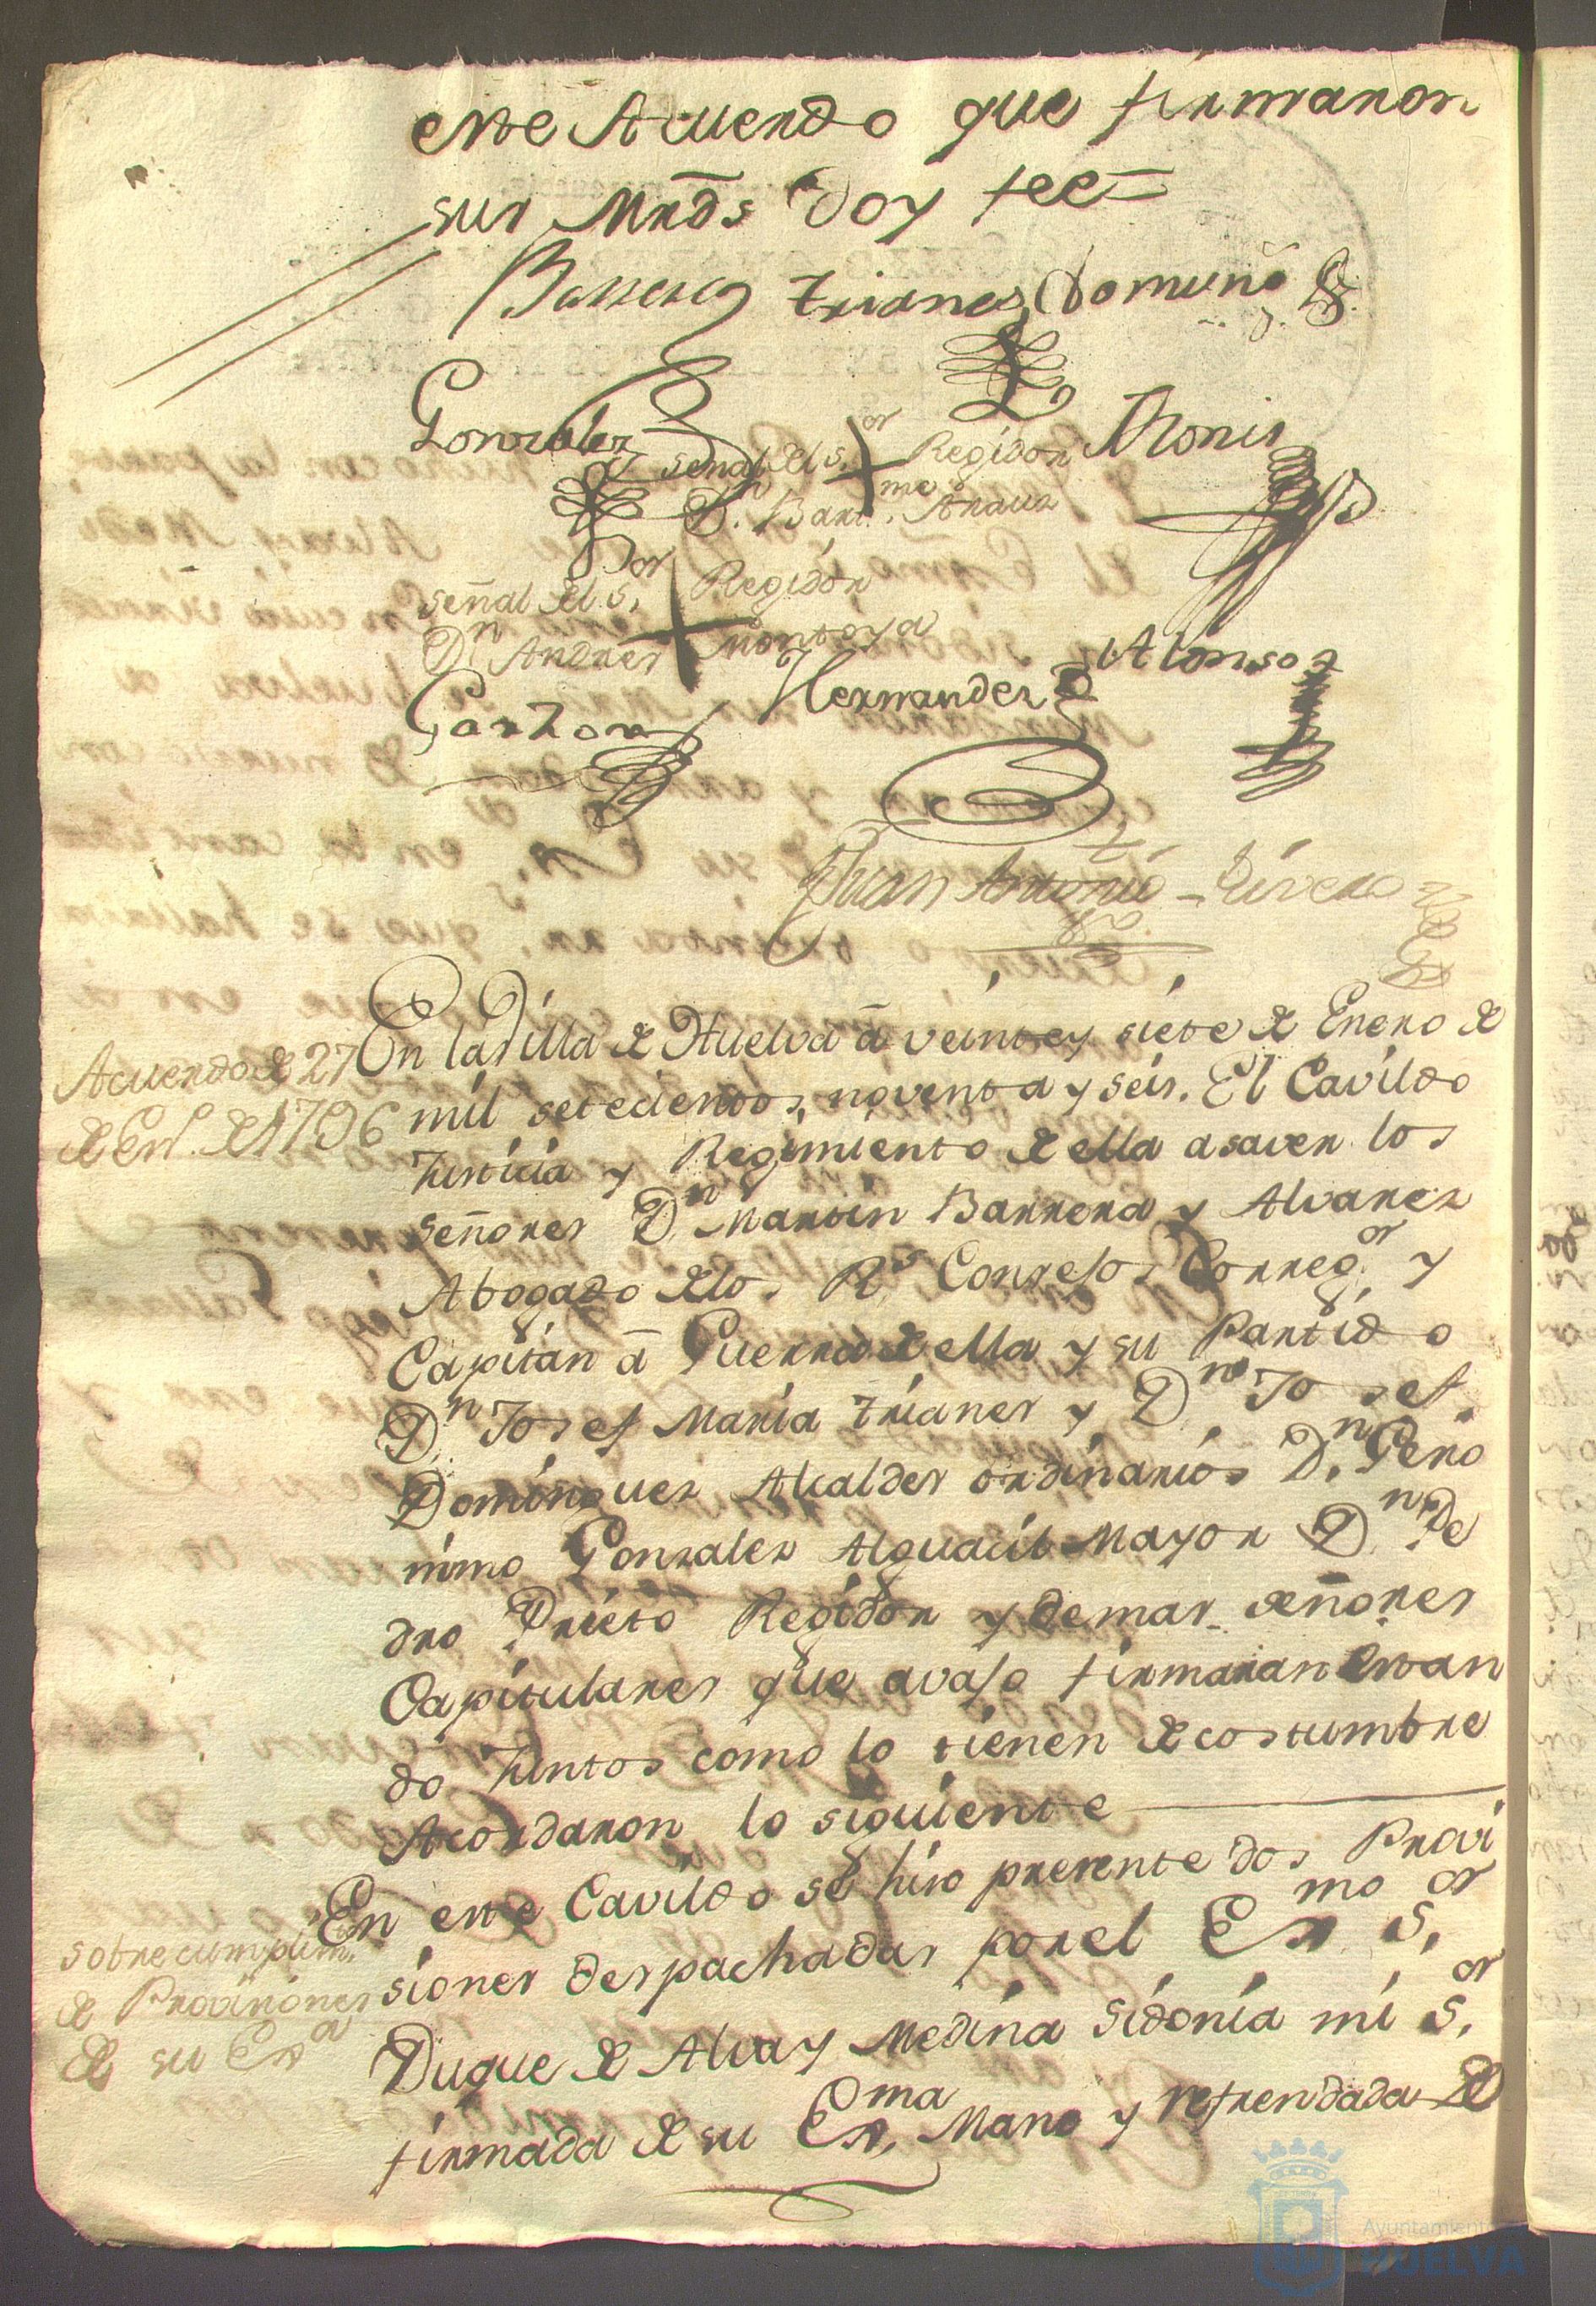 este Acuerdo que firmaron
sus Mrds doy fee=
Barrera Trianes Doming.
Gonzalez Monis
señal del s.or Regidor
D.n Bart.me Arauz
señal del s.or Regidor
D.n Andres Montoya
Garzon Hernandez Alonso
Juan Antonio Rivero
Acuerdo de 27
de En.o de 1796
En la Villa de Huelva â veinte y siete de Enero de
mil setecientos, noventa y seis. El Cavildo
Justicia y Regimiento de ella asaver los
señores D.n Martin Barrera y Alvarez
Abogado delos R.s Consejos Correg.or y
Capitan â Guerra de ella y su Partido
D.n Josef Maria Trianes y D.n Josef
Dominguez Alcaldes ordinarios D.n Gero
nimo Gonzalez Alguacil Mayor D.n Pe
dro Prieto Regidor y demas señores
Capitulares que avajo firmaran estan
do Juntos como lo tienen de costumbre
Acordaron lo siguiente
sobre cumplim.
de Provisiones
de su Ex.a
En este Cavildo se hizo presente dos Provi
siones despachadas por el Ex.mo S.or
Duque de Alva y Medina Sidonia mi S.or
firmada de su Ex.ma Mano y refrendada de
Ayuntamiento
HUELVA